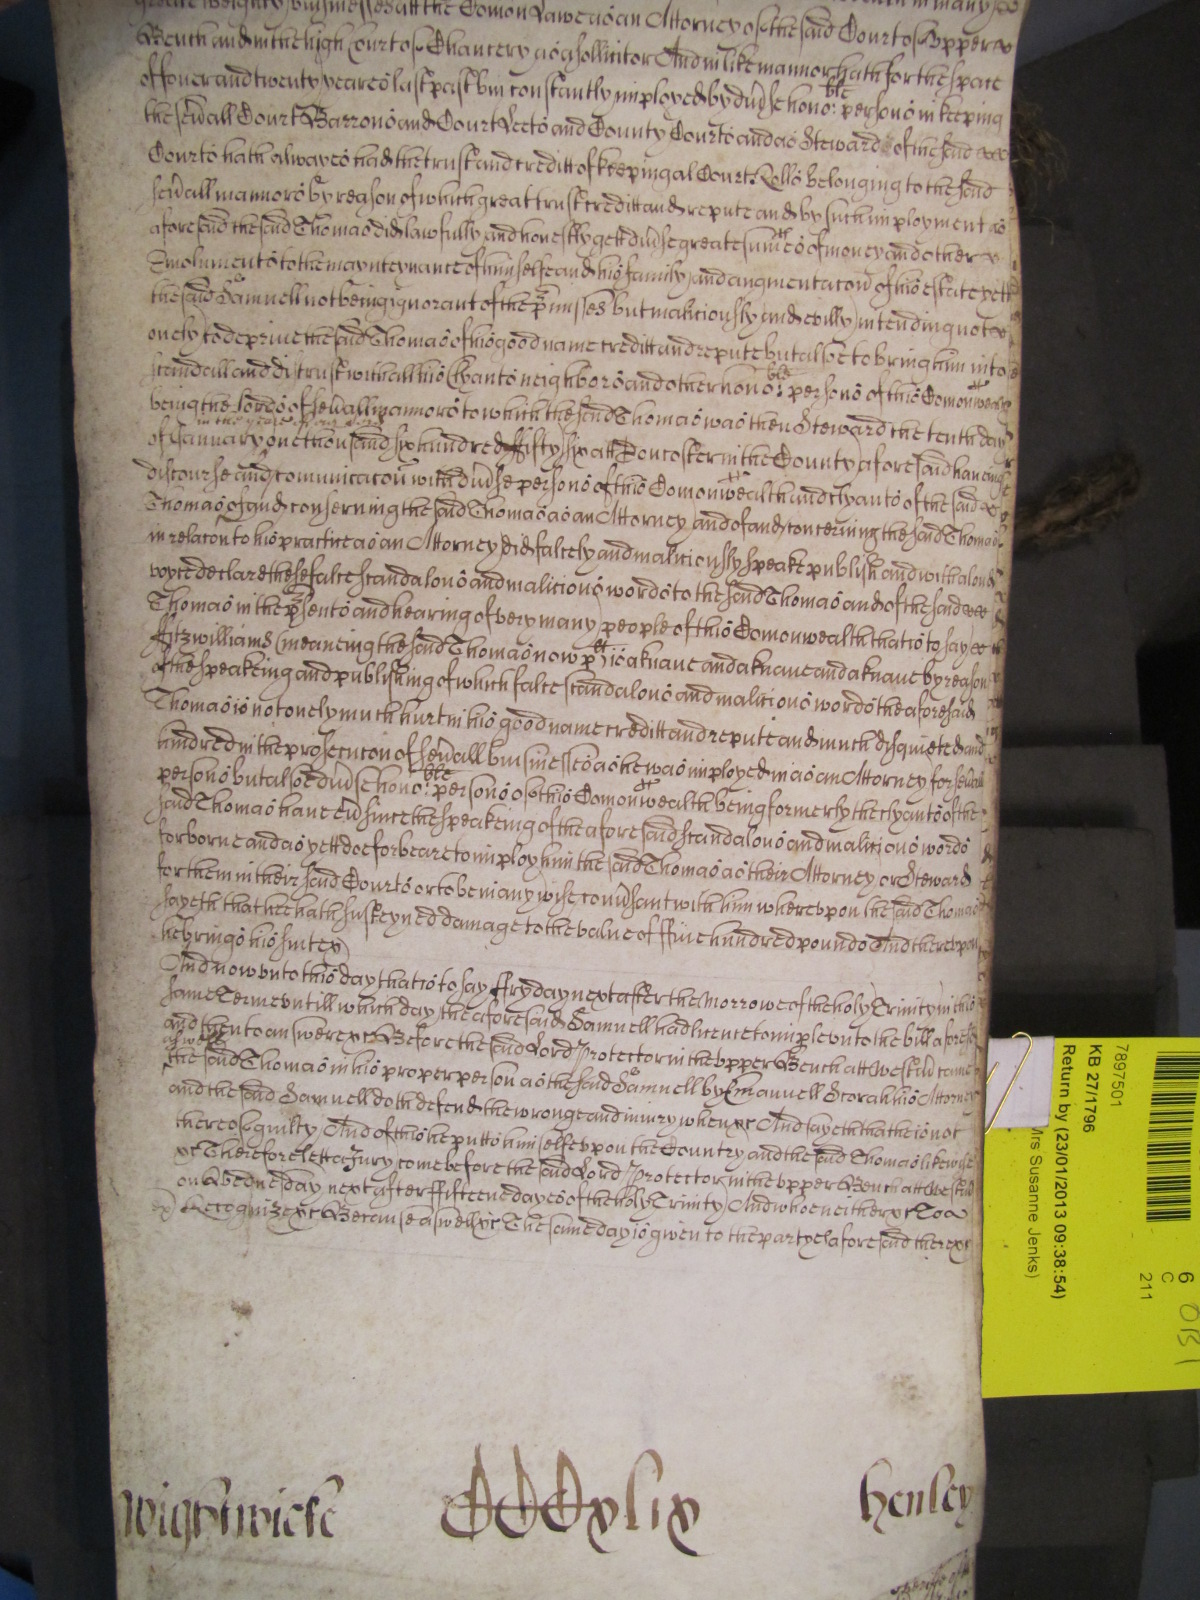 greate weighty buisinesses att the Comon Lawe as an Attorney of the said Court of Upper
Bench and in the high Court of Chancery as a sollicitor And in like mannor hath for the space
of fouer and twenty yeares last past bin constantly imployed by div̄se hono:ble persons in keeping
the sev̄all Court Barrons and Court Leets and County Courts and as Steward of the said
Courts hath alwayes had the trust and creditt of keeping al Court Rolls belonging to the said
sev̄all mannors by reason of which great trust creditt and repute and by such imployment as
aforesaid the said Thomas did lawfully and honestly gett div̄se greate sum̄es of money and other
Emoluments to the maynteynance of himselfe and his family and augmentacoñ of his estate yett
the said Samuell not being ignorant of the p̄misses but maliciously and evilly intending not
onely to deprive the said Thomas of his good name creditt and repute but alsoe to bring him into
scandall and distrust with all his clyants neighbors and other hono:ble persons of this Comonwealth
being the Lords of sev̄all mannors to which the said Thomas was then Steward the tenth day
in the yeare of our Lord
of January one thousand six hundred fifty six att Doncaster in the County aforesaid haveing
discourse and comunicacoñ with div̄se persons of this Comonwealth and clyants of the said
Thomas of and conserning the said Thomas as an Attorney and of and concerning the said Thomas
in relacon to his practice as an Attorney did falcely and maliciously speake publish and with a loud
voyce declare these false scandalous and malicious words to the said Thomas and of the said
Thomas in the p̄sents and hearing of very many people of this Comonwealth that is to say
Fitzwilliams (meaneing the said Thomas now plt) is a knave and a knave and a knave by reason
of the speakeing and publishing of which false scandalous and malicious words the aforesaid
Thomas is not onely much hurt in his good name creditt and repute and much disquieted and
hindred in the prosecucon of sev̄all buisinesses as he was imployed in as an Attorney for sev̄all
persons but alsoe div̄se hono:ble persons of this Comonwealth being formerly the clyants of the
said Thomas have ev̄ since the speakeing of the aforesaid scandalous and malicious words
forborne and as yett doe forbeare to imploy him the said Thomas as their Attorney or Steward
for them in their said Courts or to be in any wise conv̄sant with him whereupon the said Thomas
sayeth that he hath susteyned damage to the value of ffive hundred pounds And thereupon
he brings his suite
And now unto this day that is to say ffryday next after the Morrowe of the holy Trinity in this
same Terme untill which day the aforesaid Samuell had licence to imple unto the bill aforesaid
and then to answere &c Before the said Lord Protector in the upper Bench att Westm̄ came
aswell
the said Thomas in his proper person as the said Samuell by Emanuell Scorah his Attorney
and the said Samuell doth defend the wronge and iniury when &c And sayeth that he is not
thereof guilty And of this he putts himselfe upon the Country and the said Thomas likewise
&c Therefore lett a Jury come before the said Lord Protector in the upper Bench att Westm̄
on Wednesday next after ffifteene dayes of the holy Trinity And who neither &c To
Recognize &c Because aswell &c The same day is given to the partyes aforesaid there &c
Wightwicke
CCCxlix
Henley
7897501
KB 27/1796
Return by (23/01/2013 09:38:54)
Mrs Susanne Jenks)
6
C
211